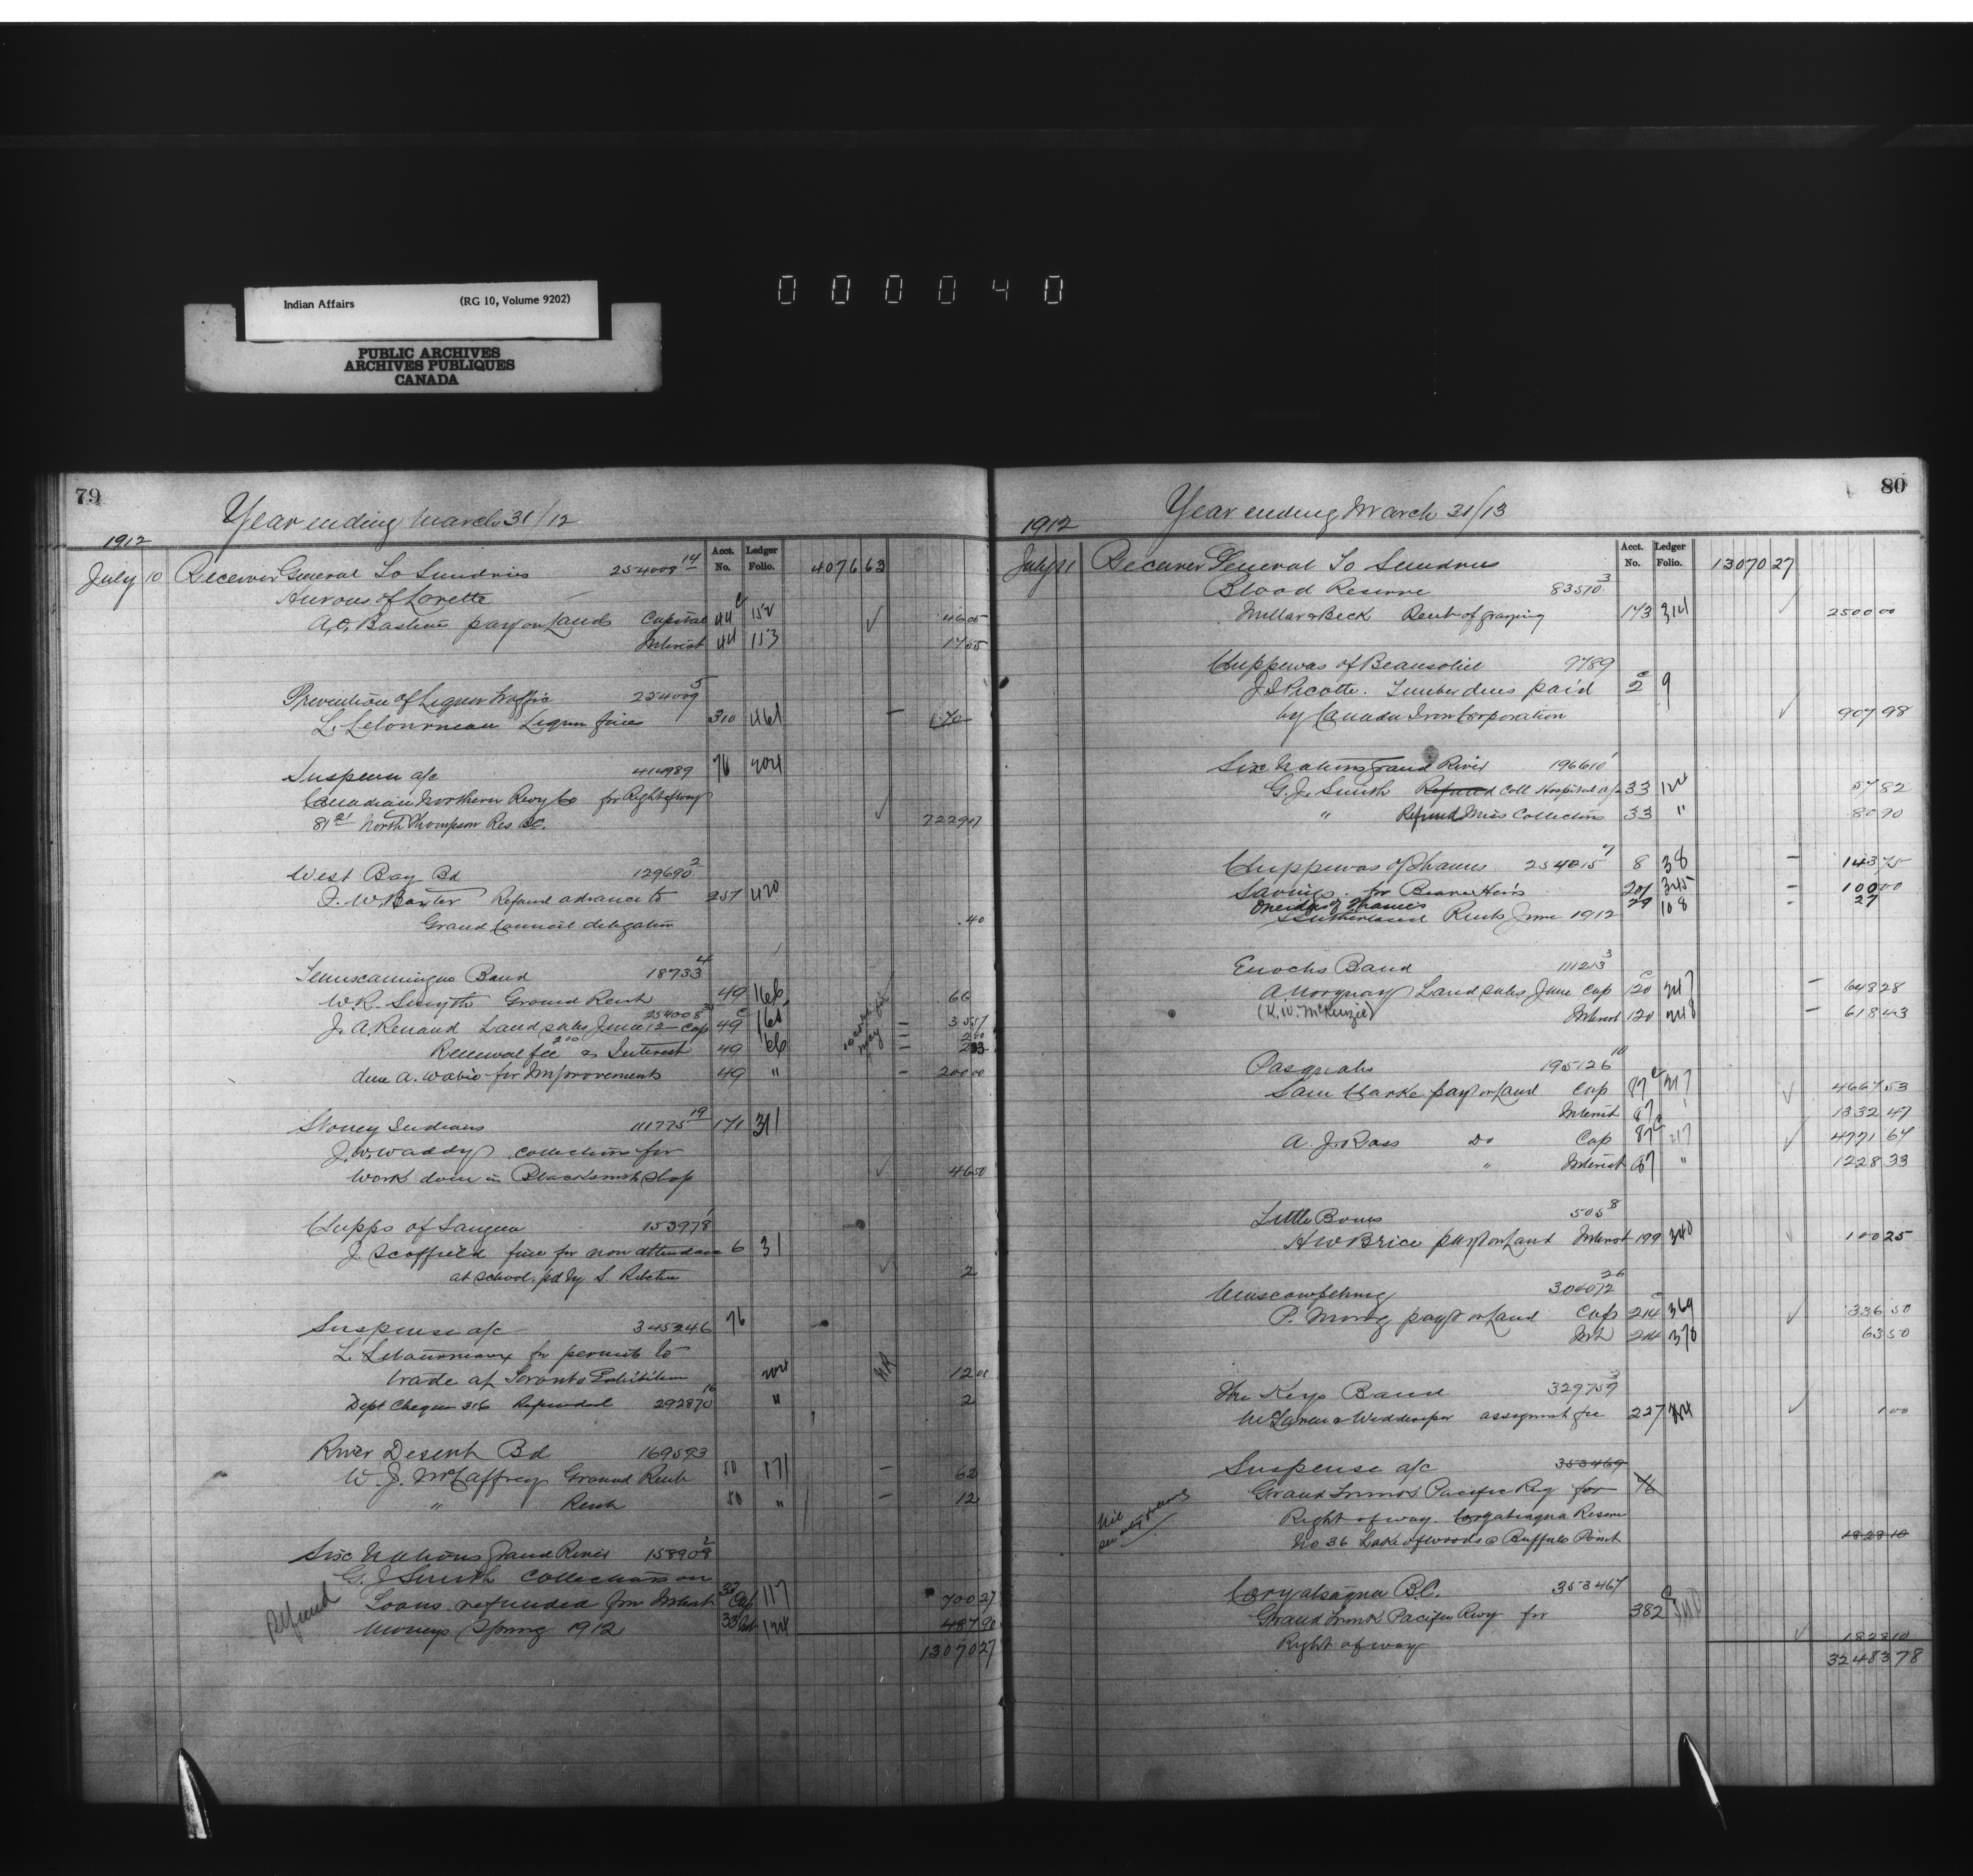 Indian Affairs (RG 10, Volume 9202)
PUBLIC ARCHIVES
ARCHIVES PUBLIQUES
CANADA
000040
79
Year ending March 31/12
1912
Acct. No. Ledger Folio.
July 10 Receiver General To Sundries 254008 14 4076 63
Hurons of Lorette
A.O. Bastien pay on Lands Capital 44 c 152 46 05
Interest 44 153 17 55
Prevention of Liquor Traffic 254009 5
L. Letourneau Liquor fines 310 461 170
Suspense a/c 414989 76 204
Canadian Northern Rwy Co for Right of way
North Thompson Res BC. 7229 07
West Bay Bd 129690 2
F. W. Baxter Refund advance to 257 420
Grand Council delegation .40
Temiscamingue Band 18733 4
W.R. Smyth Ground Rent 49 166 66
254008
J. A. Renaud Land sales June 12 Cap 49 c 165
Renewal fee 2 00 Interest 49 166
due A. Wabie for Improvements 49 " 200 00
Stoney Indians 111775 19 171 311
J. W. Waddy collections for
work done in Blacksmith Shop 46 50
Chipps of Saugeen 153978 1
J Scoffield fine for non attendance 6 31
at school pd by S. 2
Suspense a/c 345246 76
L. for permit to
trade at Toronto Exhibition 204 12 00
Dept Cheque 316 Refunded 292870 16 " 2
River Desert Bd 169593
W. J. McCaffrey Ground Rent 50 171 62
" Rent 50 " 12
Six Nations Grand River 158908 2
G. J Smith Collections on
Refund Loans refunded from Interest 33 Cap 117 700 27
Moneys Spring 1912 33 Int 124 487 90
13070 27
80
Year ending March 31/13
1912
Acct. No. Ledger Folio.
July 11 Receiver General To Sundries 13070 27
Blood Reserve 83570 3
Millar & Beck Rent of grazing 143 314 2500 00
Chippewas of Beausoliel 9789
J. Picotte. Timber dues paid 2 c 9
by Canada Iron Corporation 907 98
Six Nations Grand River 196610 1
G. J. Smith Refund Coll Hospital a/c 33 124 57 82
" Refund Misc Collections 33 " 80 90
Chippewas of Thames 254015 7 8 38 143 75
Savings for Beaver Heirs 201 345 100 00
Oneidas of Thames 29 108 27
Sutherland Rents June 1912
Enochs Band 111213 3
A. Norquay Land sales June Cap 120 c 247 643 28
(K. W. McKenzie) Interest 120 248 618 43
Pasquahs 195126 10
Sam Clarke pay't on Land Cap 87 c 217 4667 53
Interest 87 1332 47
A. J. Ross Do Cap 87 c 217 4771 67
" Interest 87 " 1228 33
Little Bones 505 8
H W Brice pay't on Land Interest 199 340 100 25
Muscowpetung 304072 26
P. pay't on Land Cap 214 c 369 336 50
Int 214 370 63 50
The Keys Band 329759 3
McLaren & assignmt fee 227 1 00
Suspense a/c 353469
Grand Trunk Pacific Rwy for 76
Right of way. Reserve
No 36 Lake of woods @ Buffalo Point 1828 10
B.C. 353467
Grand Trunk Pacific Rwy for 382 c
Right of way 1828 10
32483 78